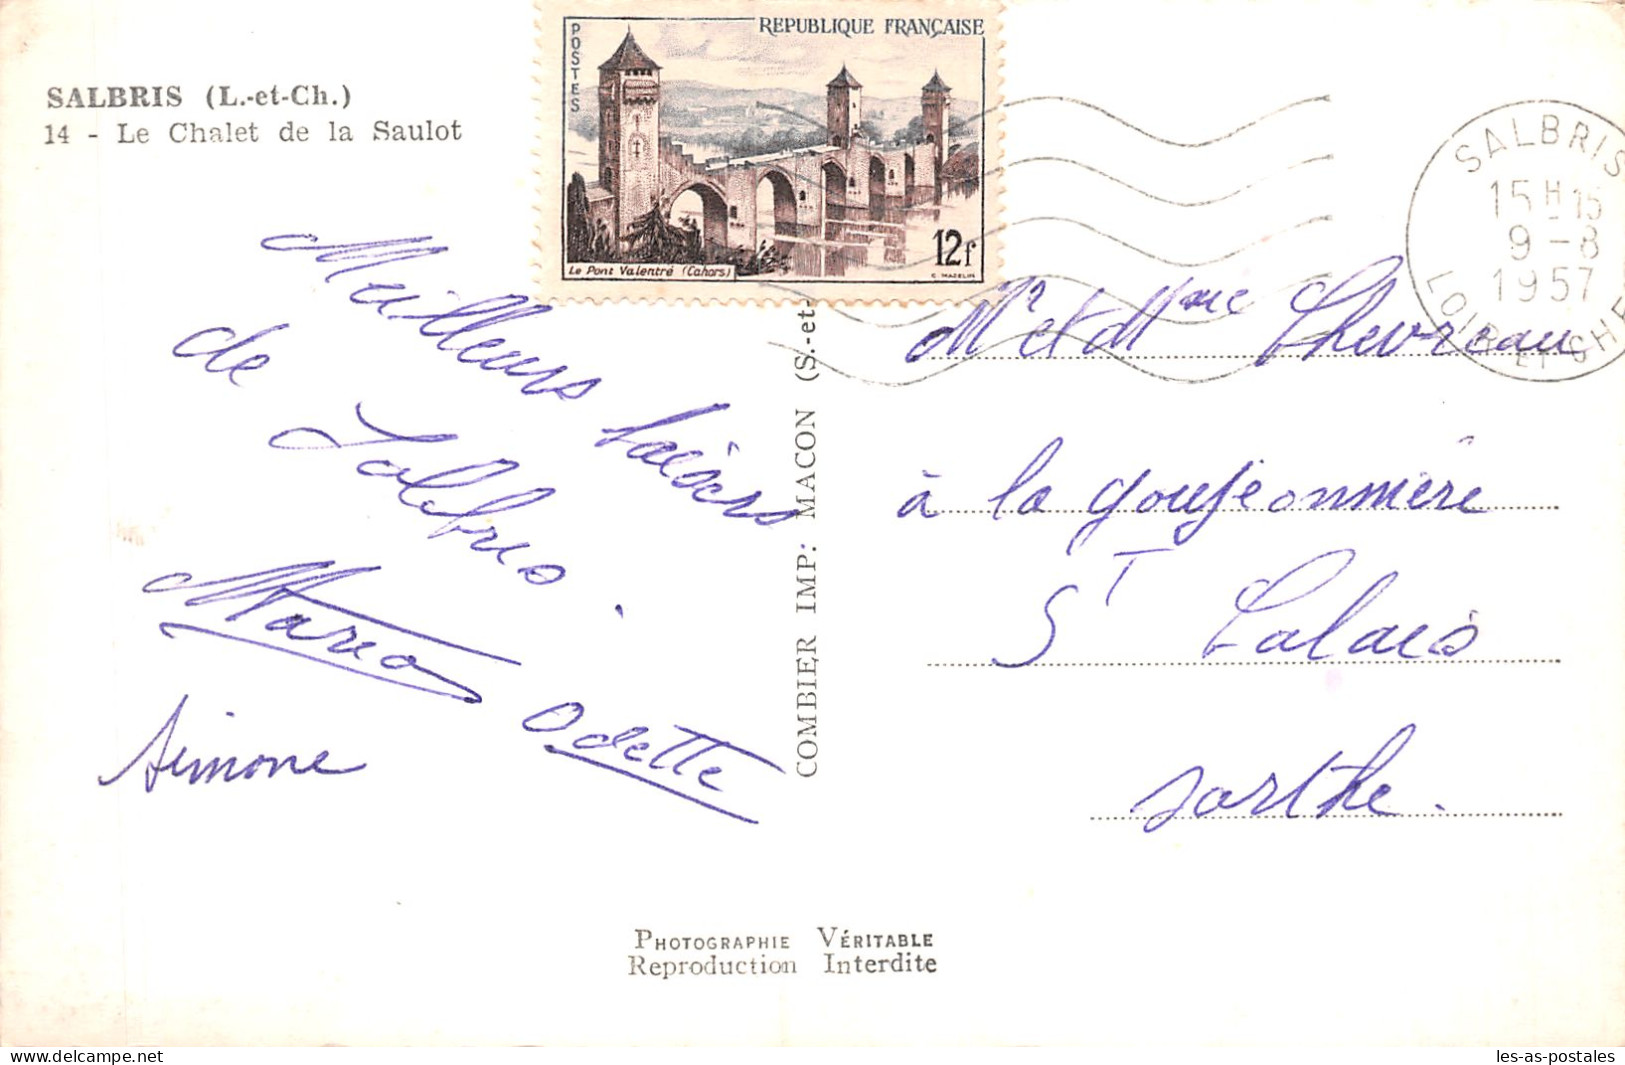 SALBRIS (L.-et-Ch.)
14 - Le Chalet de la Saulot
POSTES
REPUBLIQUE FRANÇAISE
Le Pont Valentré (Cahors)
12f
C. MAZELIN
SALBRIS
15H15
9-8
1957
LOIR ET CHE
Meilleurs baisers
de Salbris.
Maria
Odette
Simone
COMBIER IMP: MACON (S.-et-
Mr et Mme Chevreau
à la goujeonniere
St Calais
Sarthe.
PHOTOGRAPHIE VÉRITABLE
Reproduction Interdite
delcampe.net
les-as-postales